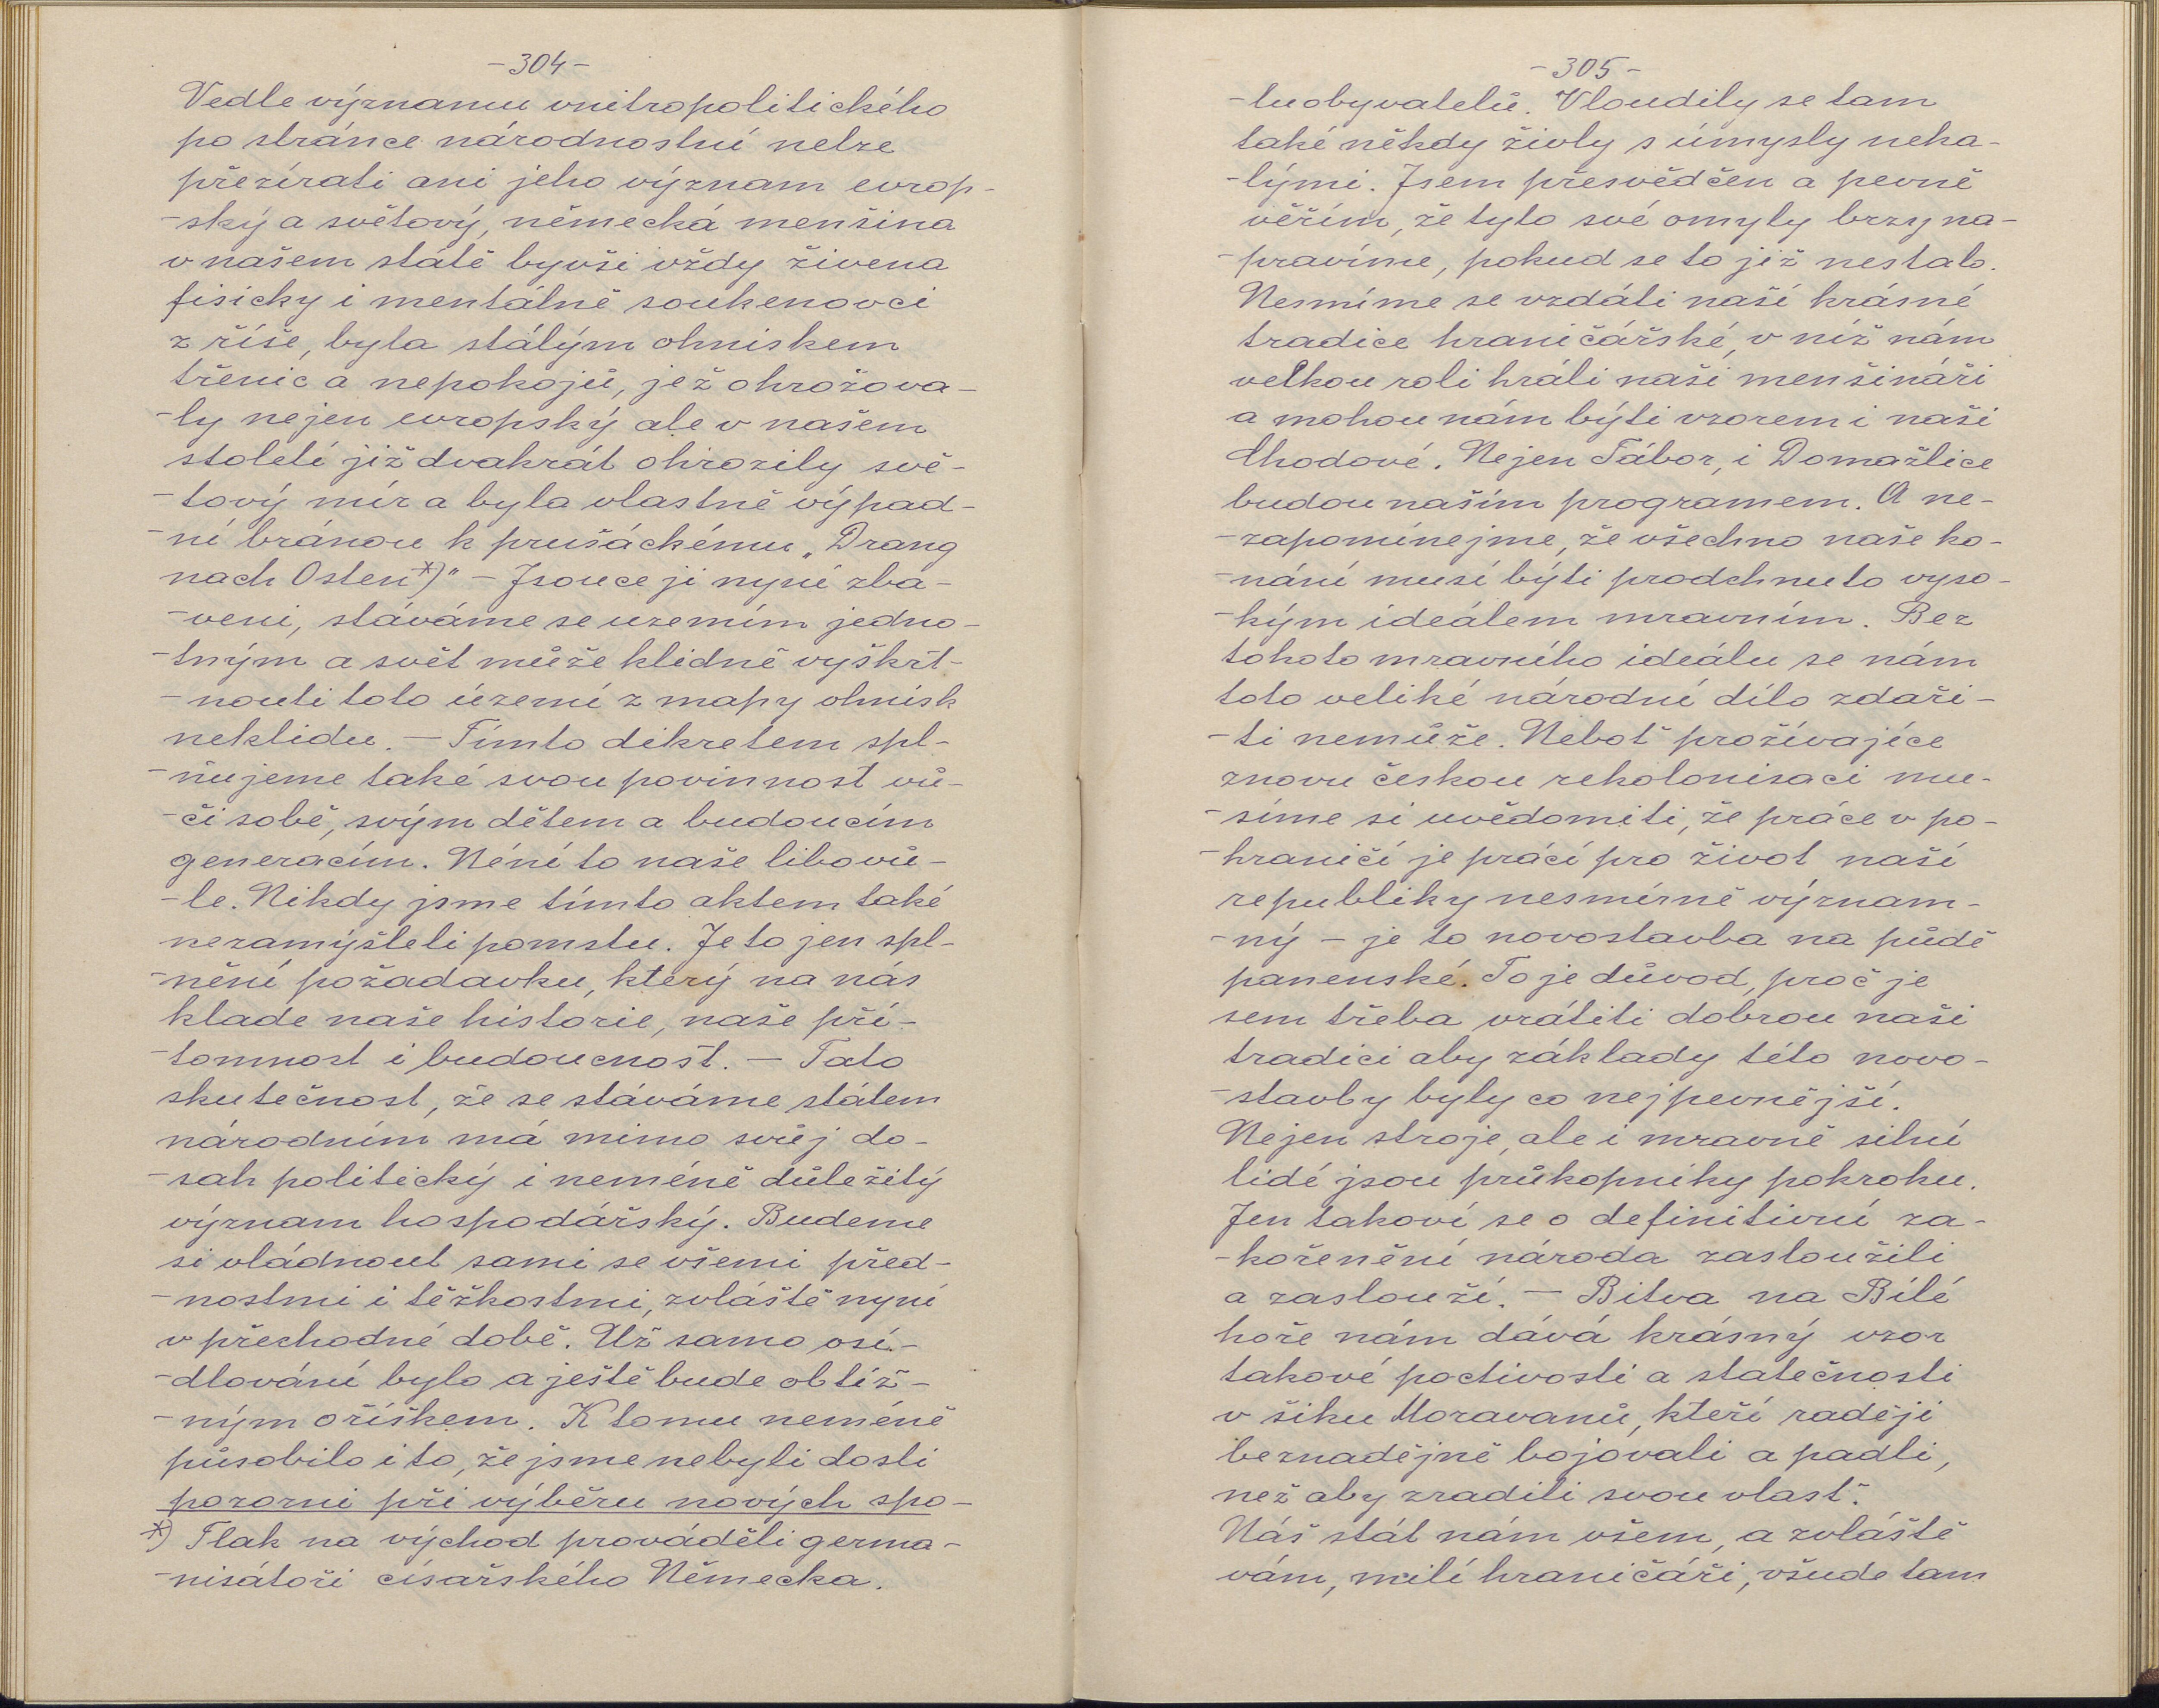 -304-
Vedle významu vnitropolitického
po stránce národnostní nelze
přezírati ani jeho význam evrop-
-ský a světový, německá menšina
v našem státě byvši vždy živena
fisicky i mentálně soukenovci
z říše, byla stálým ohniskem
třenic a nepokojů, jež ohrožova-
-ly nejen evropský ale v našem
století již dvakrát ohrozily svě-
-tový mír a byla vlastně výpad-
-ní bránou k prušáckému „Drang
nach Osten*)" - Jsouce jí nyní zba-
-veni, stáváme se uzemím jedno-
-tným a svět může klidně vyškrt-
-nouti toto území z mapy ohnisk
neklidu. - Tímto dekretem spl-
-ňujeme také svou povinnost vů-
-či sobě, svým dětem a budoucím
generacím. Není to naše libovů-
-le. Nikdy jsme tímto aktem také
nezamýšleli pomstu. Je to jen spl-
-nění požadavku, který na nás
klade naše historie, naše pří-
-tomnost i budoucnost. - Tato
skutečnost, že se stáváme státem
národním má mimo svůj do-
-sah politický i neméně důležitý
význam hospodářský. Budeme
si vládnout sami se všemi před-
-nostmi i těžkostmi, zvláště nyní
v přechodné době. Už samo osí-
-dlování bylo a ještě bude obtíž-
-ným oříškem. K tomu neméně
působilo i to, že jsme nebyli dosti
pozorni při výběru nových spo-
*) Tlak na východ prováděli germa-
-nisátoři císařského Německa.
-305-
-luobyvatelů. Vloudily se tam
také někdy živly s úmysly neka-
-lými. Jsem přesvědčen a pevně
věřím, že tyto své omyly brzy na-
-pravíme, pokud se to již nestalo.
Nesmíme se vzdáti naší krásné
tradice hraničářské, v níž nám
velkou roli hráli naši menšináři
a mohou nám býti vzorem i naši
Chodové. Nejen Tábor, i Domažlice
budou naším programem. A ne-
-zapomínejme, že všechno naše ko-
-nání musí býti prodchnuto vyso-
-kým ideálem mravním. Bez
tohoto mravního ideálu se nám
toto veliké národní dílo zdaři-
-ti nemůže. Neboť prožívajíce
znovu českou rekolonisaci mu-
-síme si uvědomiti, že práce v po-
-hraničí je prácí pro život naší
republiky nesmírně význam-
-ný - je to novostavba na půdě
panenské. To je důvod, proč je
sem třeba vrátiti dobrou naši
tradici aby základy této novo-
-stavby byly co nejpevnější.
Nejen stroje, ale i mravně silní
lidé jsou průkopníky pokroku.
Jen takoví se o definitivní za-
-kořenění národa zasloužili
a zaslouží. - Bitva na Bílé
hoře nám dává krásný vzor
takové poctivosti a statečnosti
v šiku Moravanů, kteří raději
beznadějně bojovali a padli,
než aby zradili svou vlasť.
Náš stát nám všem, a zvláště
vám, milí hraničáři, všude tam